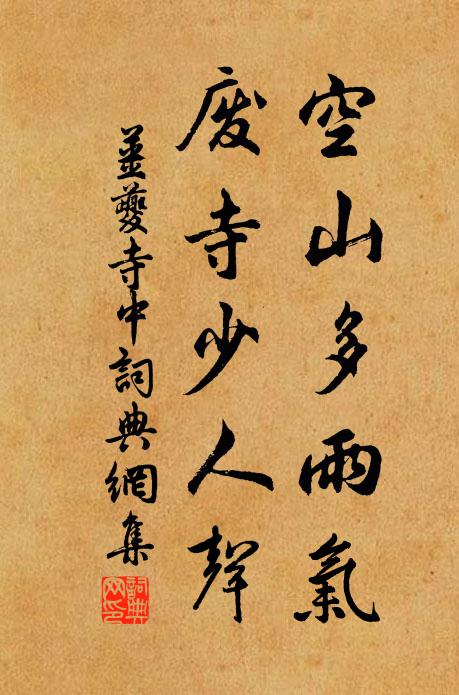 空山多雨氣
廢寺少人聲
薑夔寺中詞典網集
詞典网印